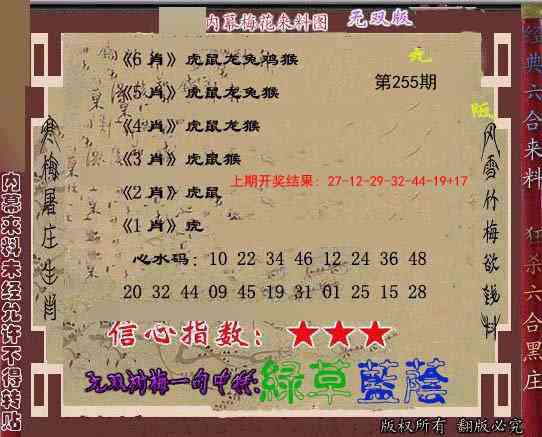 内幕梅花来料图 无双版
《6 肖》虎鼠龙兔鸡猴
《5 肖》虎鼠龙兔猴
《4 肖》虎鼠龙猴
《3 肖》虎鼠猴
《2 肖》虎鼠
《1 肖》虎
第255期
上期开奖结果: 27-12-29-32-44-19+17
心水码: 10 22 34 46 12 24 36 48
20 32 44 09 45 19 31 01 25 15 28
信心指数: ★★★
绿草蓝荫
寒梅屠庄生肖
风雪竹梅欲钱料
内幕来料未经允许不得转贴
经典六合来料
狂杀六合黑庄
版权所有 翻版必究